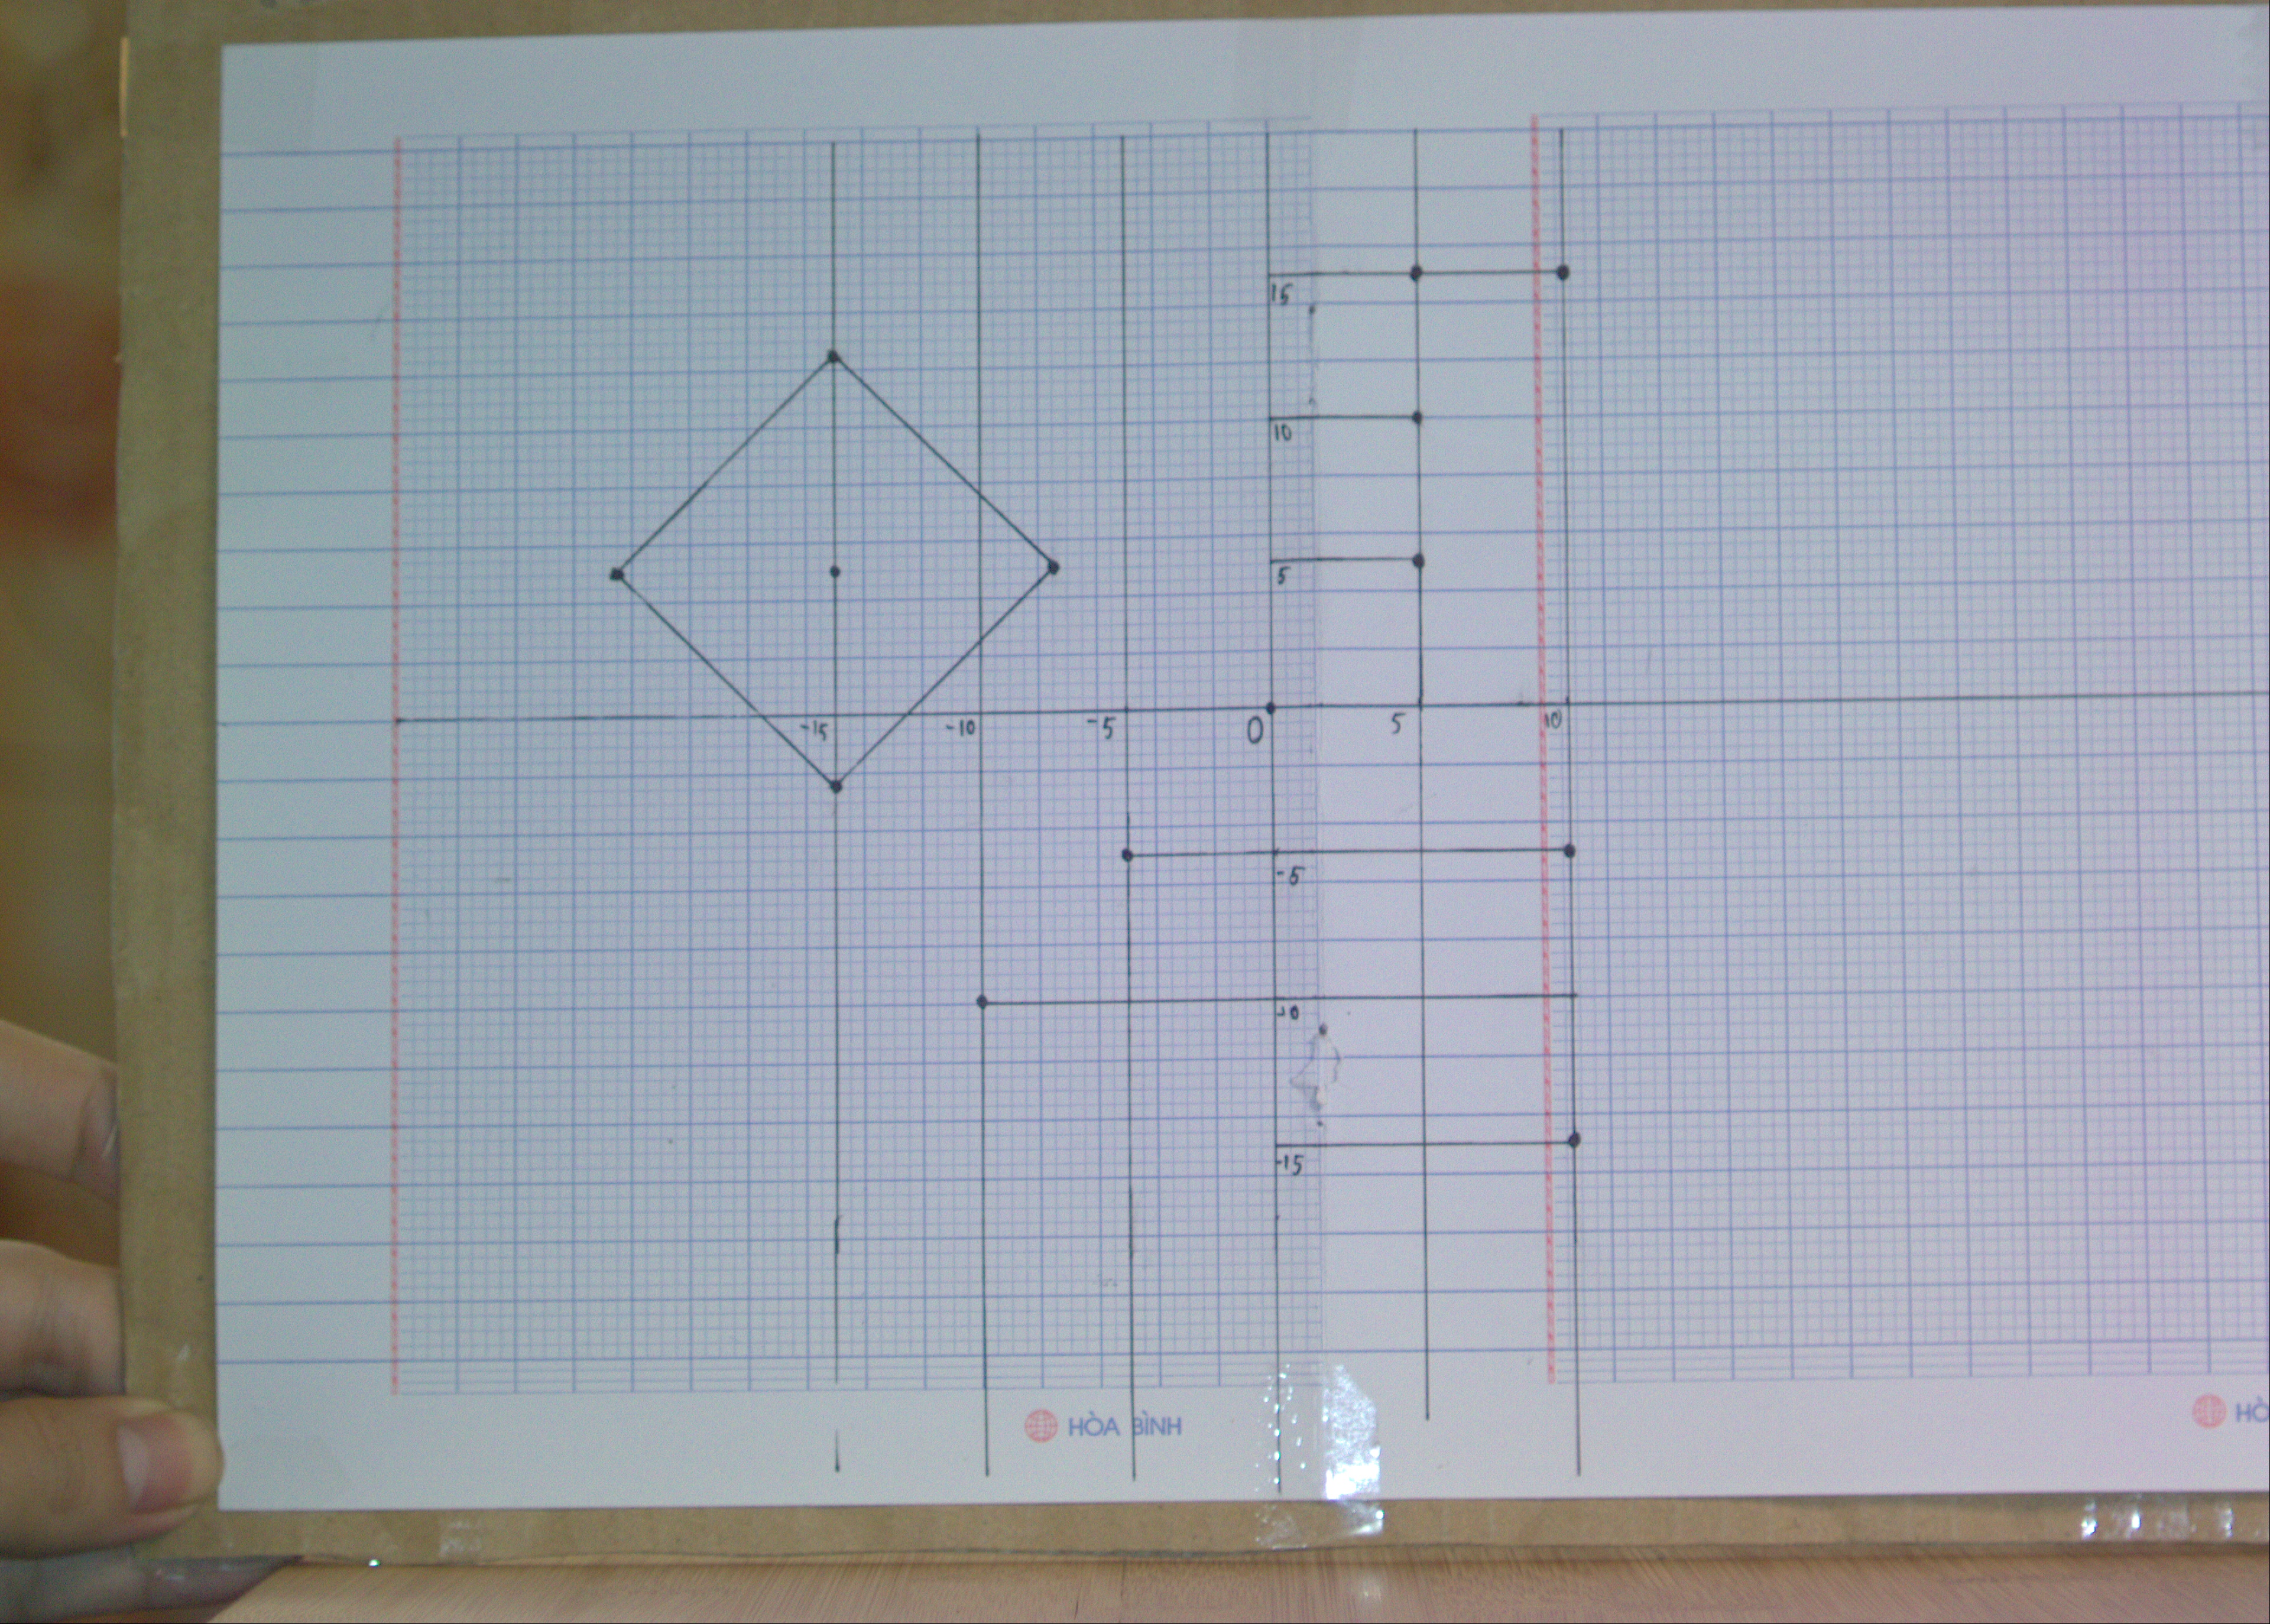 15
10
5
-15 -10 -5 0 5 10
-5
-10
-15
HÒA BÌNH HÒ